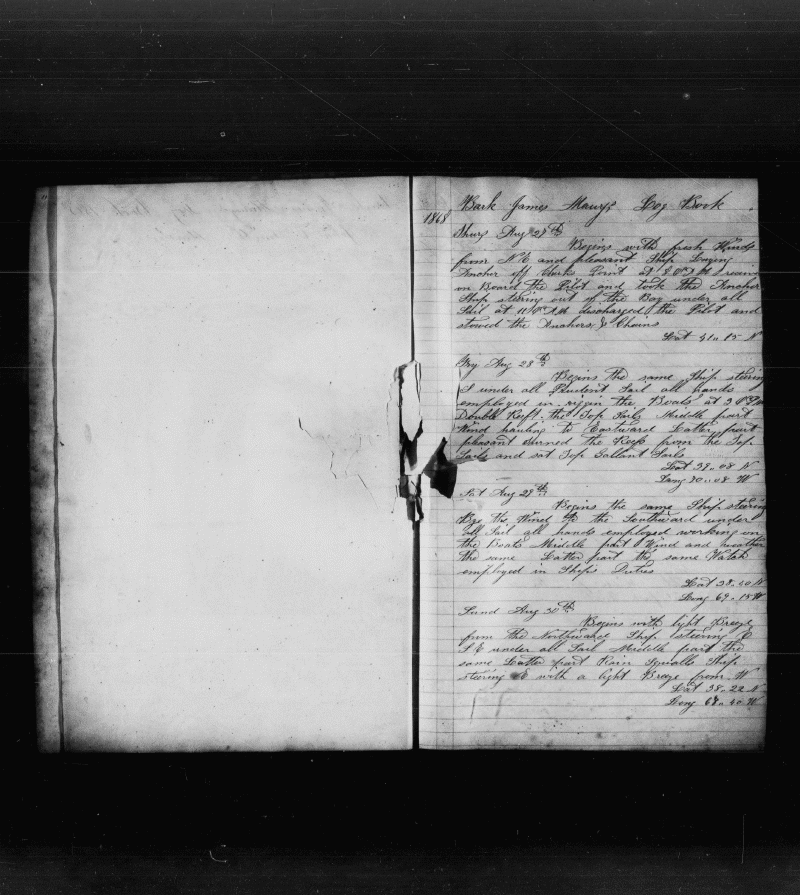 Bark James Maury's Log Book
1868
Thurs Aug 27th
Begins with fresh Winds
from N.E and pleasant Ship Laying
Anchor off Clarks Point at 8 A.M received
on Board the Pilot and took the Anchor
Ship steering out of the Bay under all
Sail at 11 A.M discharged the Pilot and
stowed the Anchors & Chains
Lat 41.. 15 N
Fry Aug 28th
Begins the same Ship steering
S under all Prudent Sail all hands
employed in rigin the Boats at 3 P.M
Double Reeft the Top Sails Middle part
Wind hauling to Eastward Latter part
pleasant turned the Reefs from the Top
Sails and sat Top Gallant Sails
Lat 39.. 08 N
Long 70.. 08 W
Sat Aug 29th
Begins the same Ship steering
Bye the Wind to the Southward under
all Sail all hands employed working on
the Boats Middle part Wind and weather
the same Latter part the same Watch
employed in Ships Duties
Lat 38.. 20 N
Long 69.. 15 W
Sund Aug 30th
Begins with light Breeze
from the Northward Ship steering E
S E under all Sail Middle part the
same Latter part Rain Squalls Ship
steering E with a light Breeze from W
Lat 38.. 22 N
Long 67.. 40 W